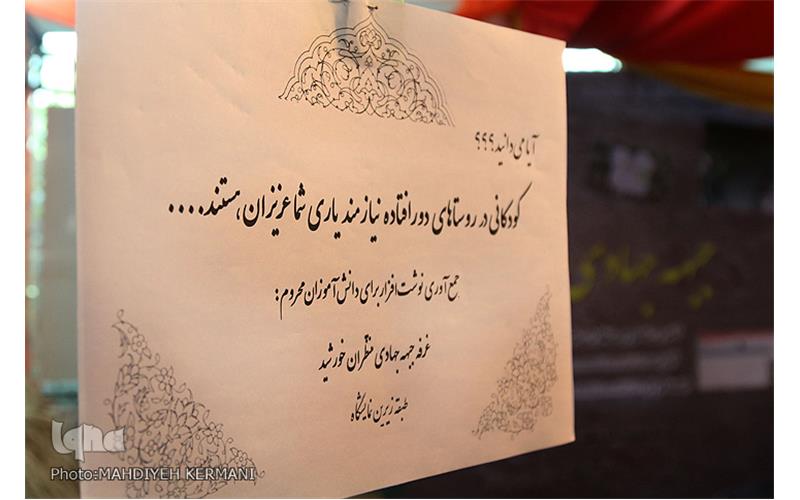 آیا می دانید؟؟؟
کودکانی در روستاهای دورافتاده نیازمند یاری شما عزیزان هستند....
جمع آوری نوشت افزار برای دانش آموزان محروم:
غرفه جبهه جهادی منتظران خورشید
طبقه زیرین نمایشگاه
جبهه جهادی
iqna
Photo:MAHDIYEH KERMANI